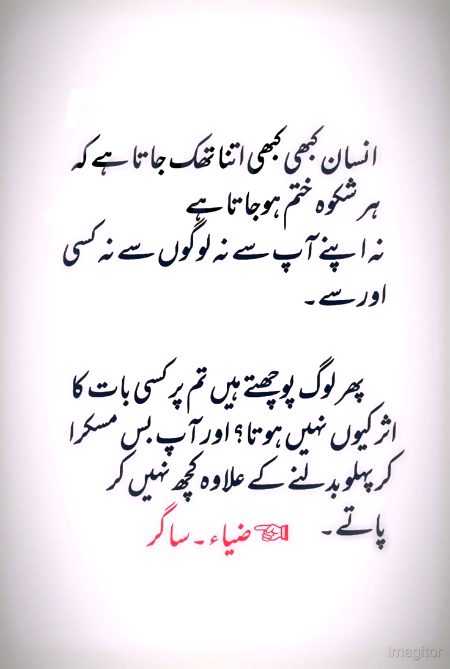 انسان کبھی کبھی اتنا تھک جاتا ہے کہ
ہر شکوہ ختم ہوجاتا ہے
نہ اپنے آپ سے نہ لوگوں سے نہ کسی
اور سے۔
پھر لوگ پوچھتے ہیں تم پر کسی بات کا
اثر کیوں نہیں ہوتا؟ اور آپ بس مسکرا
کر پہلو بدلنے کے علاوہ کچھ نہیں کر
پاتے۔ ☜ ضیاء۔ساگر
Imagitor